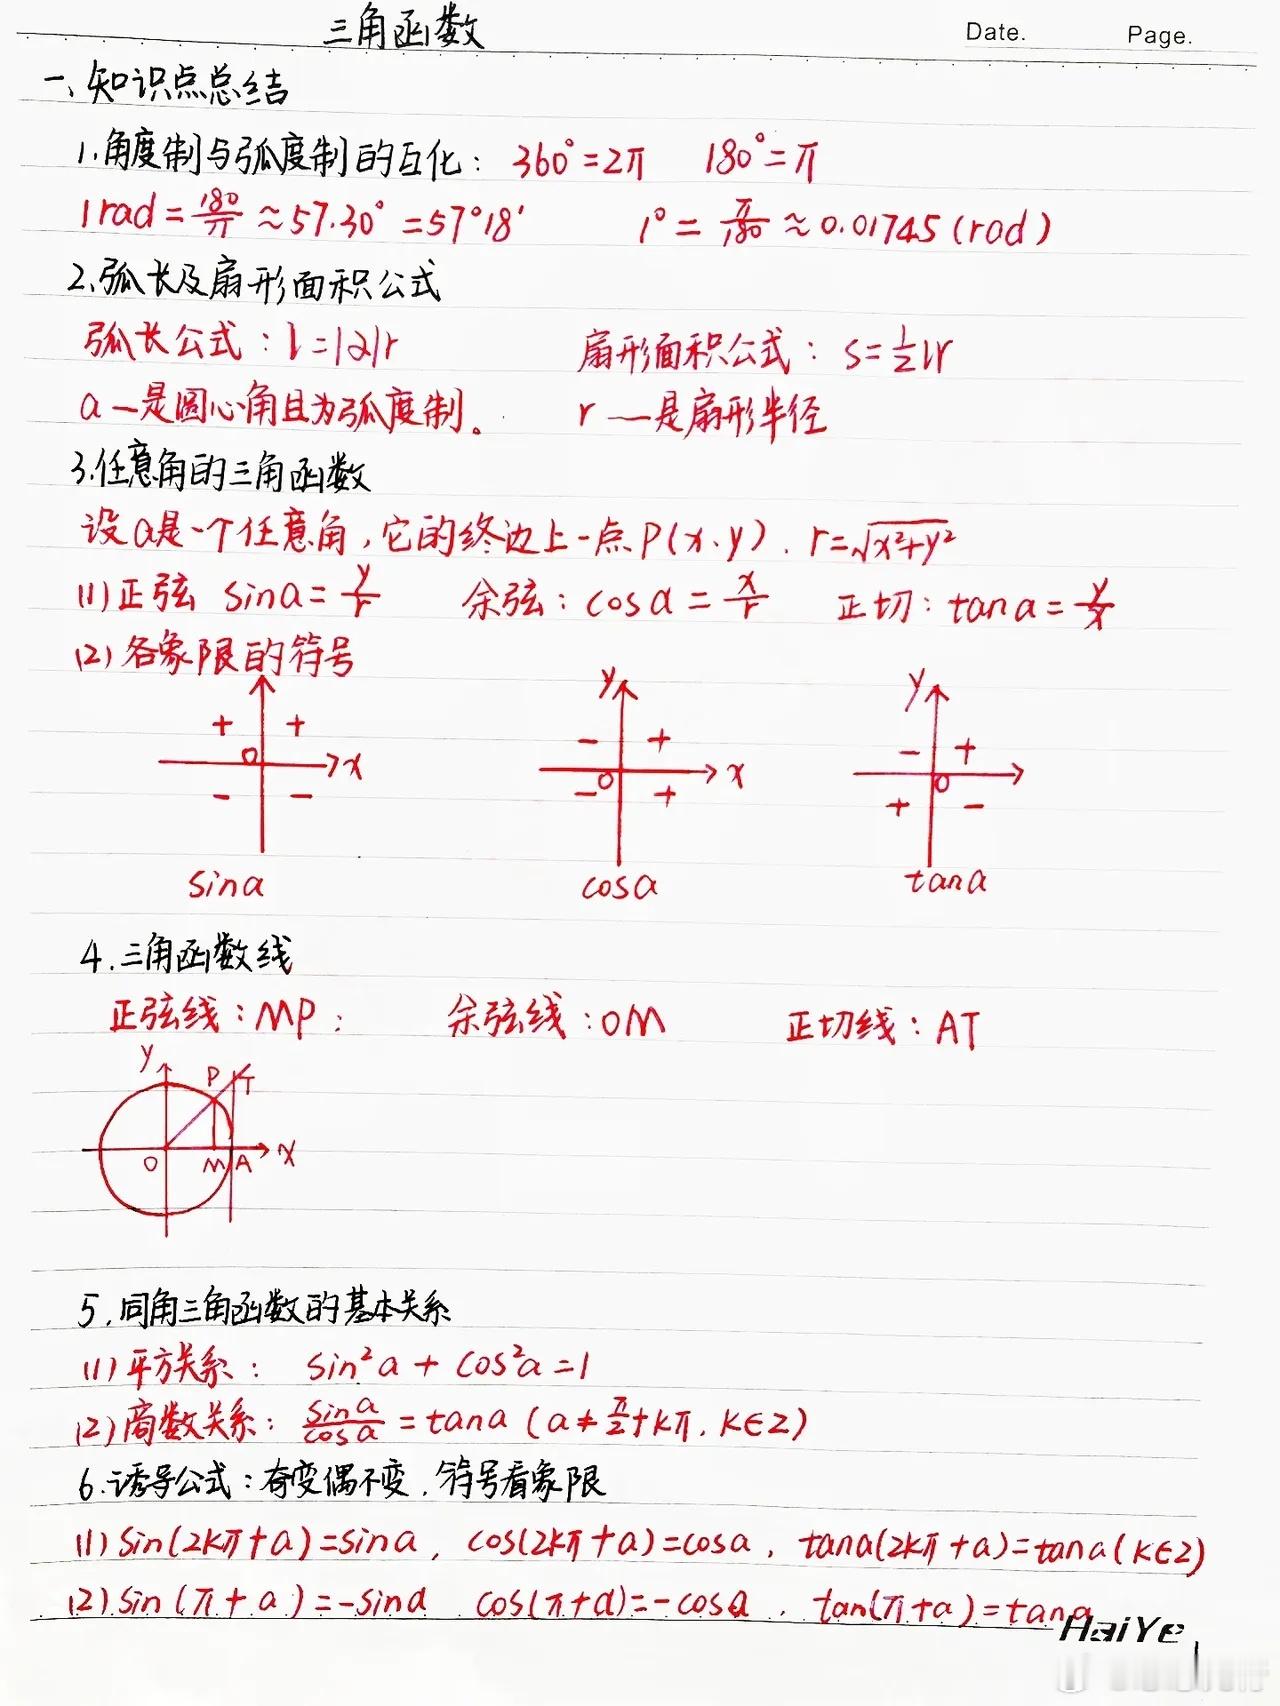 三角函数
Date. Page.
一、知识点总结
1.角度制与弧度制的互化: 360°=2π 180°=π
1rad=180/π≈57.30°=57°18′ 1°=π/180≈0.01745(rad)
2.弧长及扇形面积公式
弧长公式: l=|α|r 扇形面积公式: s=1/2lr
α—是圆心角且为弧度制。 r—是扇形半径
3.任意角的三角函数
设α是一个任意角,它的终边上一点P(x、y). r=√x²+y²
(1)正弦 sinα=y/r 余弦: cosα=x/r 正切: tanα=y/x
(2)各象限的符号
y y
+ + - + - +
O x O x O
- - - + + -
sinα cosα tanα
4.三角函数线
正弦线:MP; 余弦线:OM 正切线:AT
y P T
O M A x
5.同角三角函数的基本关系
(1)平方关系: sin²α+cos²α=1
(2)商数关系: sinα/cosα=tanα(α≠π/2+kπ,k∈Z)
6.诱导公式:奇变偶不变,符号看象限
(1)sin(2kπ+α)=sinα, cos(2kπ+α)=cosα, tanα(2kπ+α)=tanα(k∈Z)
(2)sin(π+α)=-sinα cos(π+α)=-cosα, tan(π+α)=tanα
HaiYe